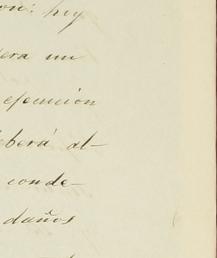 on: hoy
era un
ejecución
eberá al-
conde-
daños